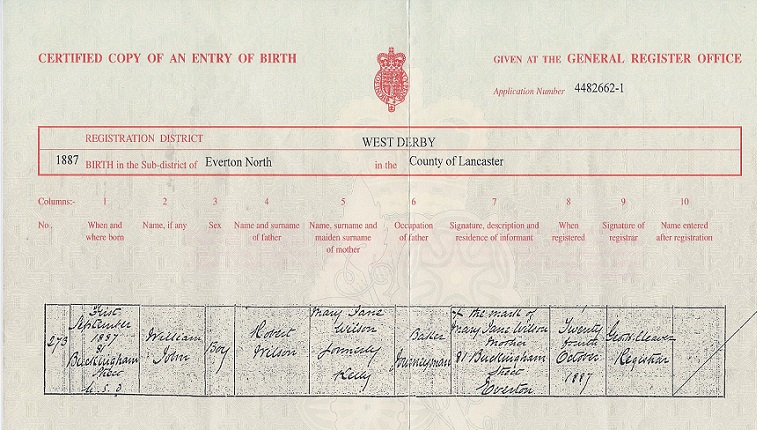 CERTIFIED COPY OF AN ENTRY OF BIRTH
GIVEN AT THE GENERAL REGISTER OFFICE
Application Number 4482662-1
REGISTRATION DISTRICT
WEST DERBY
1887 BIRTH in the Sub-district of Everton North in the County of Lancaster
Columns:- 1 2 3 4 5 6 7 8 9 10
No. When and where born Name, if any Sex Name and surname of father Name, surname and maiden surname of mother Occupation of father Signature, description and residence of informant When registered Signature of registrar Name entered after registration
273
First
September
1887
81
Buckingham
Street
U.S.D.
William
John
Boy
Robert
Wilson
Mary Jane
Wilson
formerly
Kelly
Baker
Journeyman
the mark of
Mary Jane Wilson
Mother
81 Buckingham
Street
Everton
Twenty
fourth
October
1887
Cleaver
Registrar